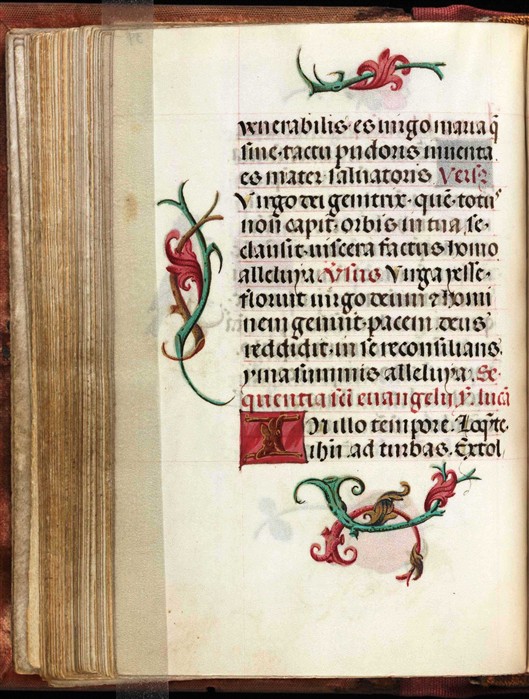 venerabilis es virgo maria q̄
sine tactu pudoris inventa
es mater salvatoris Vers9
Virgo dei genitrix quē totus
non capit orbis in tua se
clausit viscera factus homo
alleluya. Vſus Virga yesse
floruit virgo deum ⁊ homi
nem genuit pacem deus
reddidit in se reconsilians
yma summis alleluya. Se
quentia sc̄i evangelij s. lucā
In illo tempore. Loq̄nte
ihū ad turbas. Extol